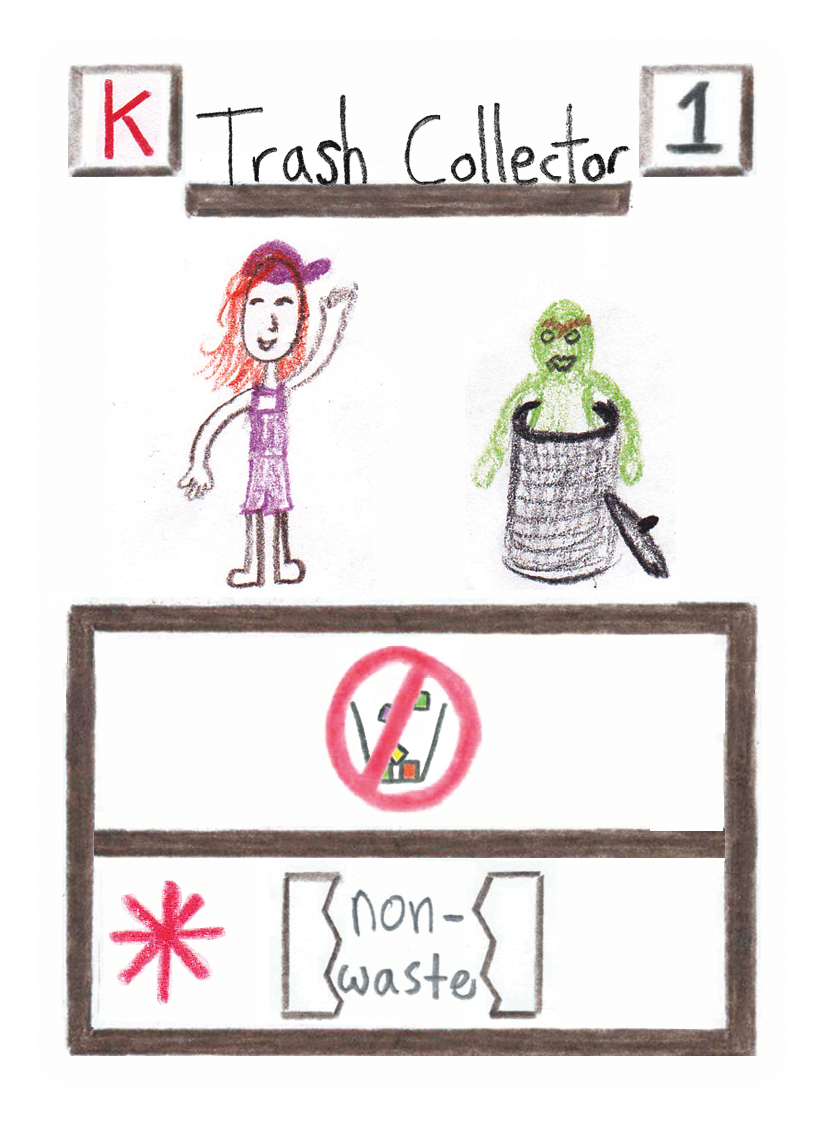 K
Trash Collector
1
non-
waste